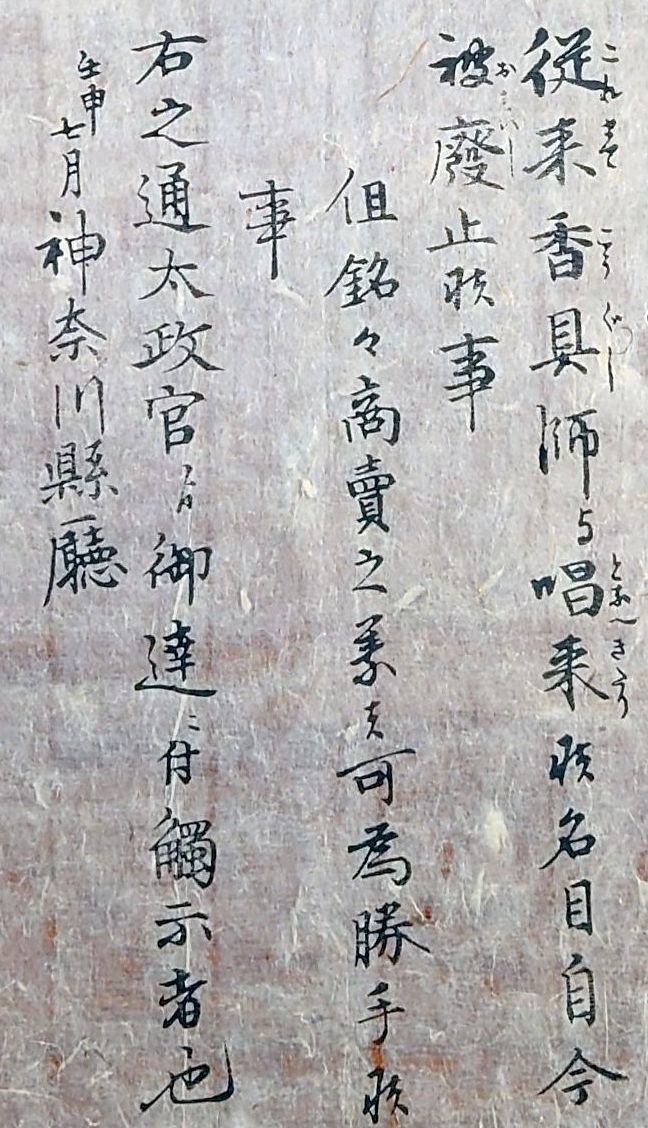 従来香具師与唱来候名目自今
被廃止候事
但銘々商賣之義者可為勝手候
事
右之通太政官ゟ御達ニ付觸示者也
壬申七月神奈川縣廳